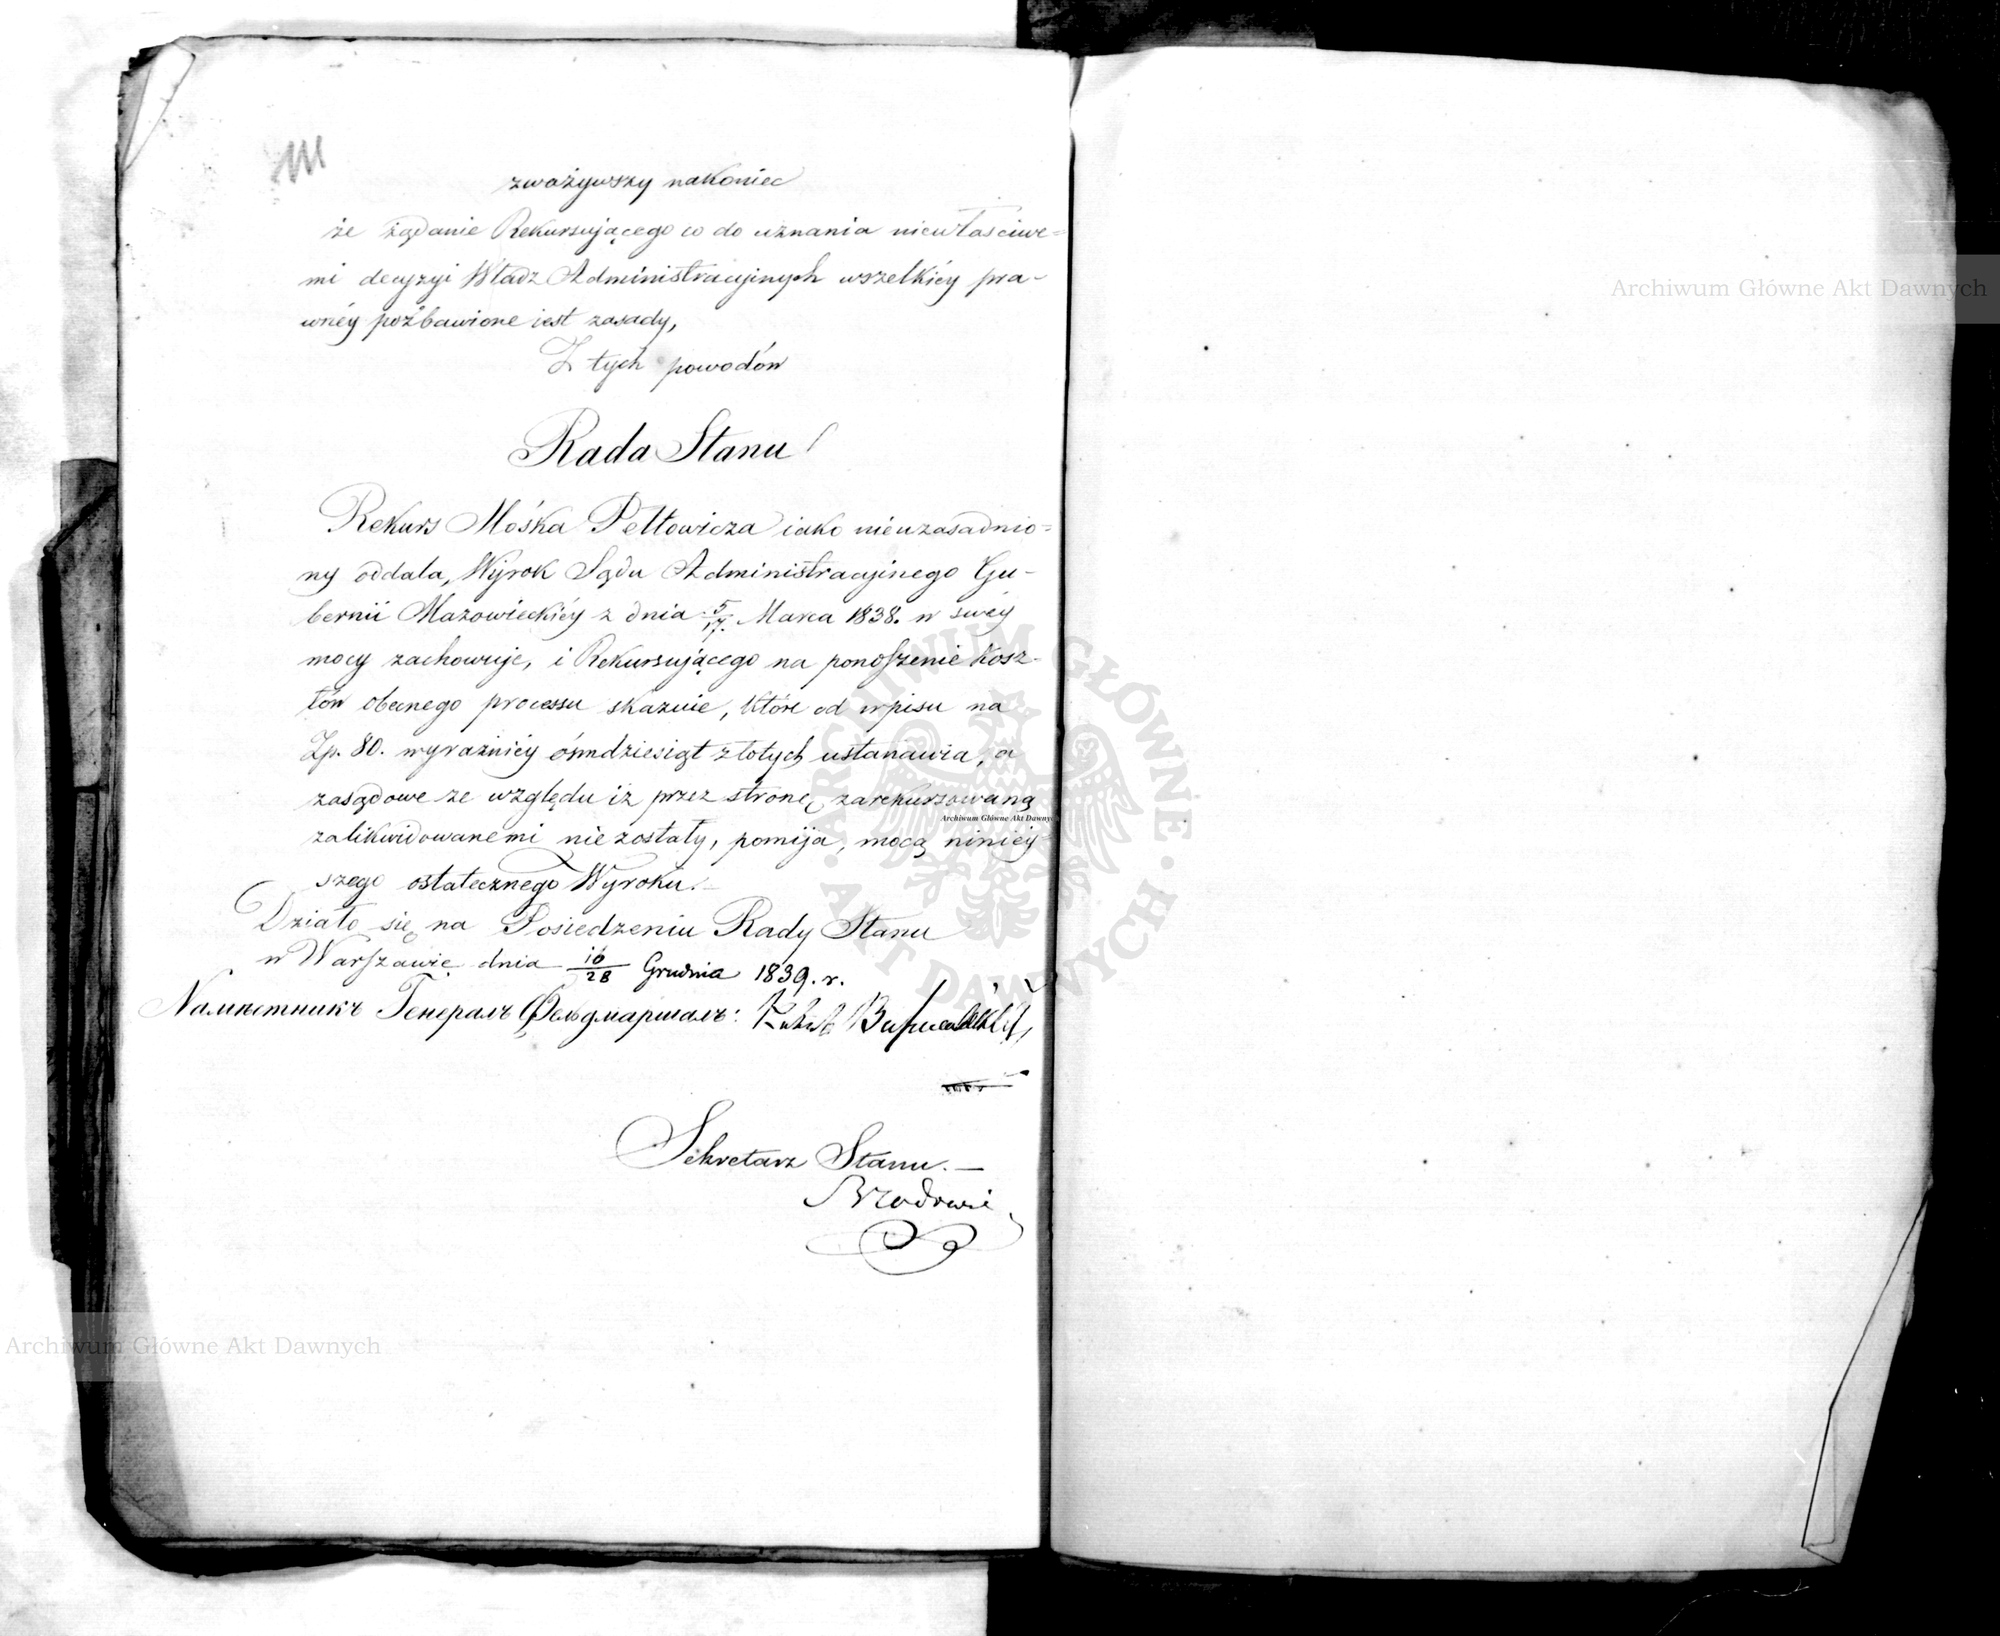 zważywszy nakoniec
że żądanie Rekursującego co do uznania niewłaściwe=
mi decyzyi Władz Administracyjnych wszelkiéy pra-
wnéy pozbawione iest zasady,
Z tych powodów
Rada Stanu
Rekurs Mośka Peltowicza iako nieuzasadnio=
ny oddala, Wyrok Sądu Administracyjnego Gu-
bernii Mazowieckiéy z dnia 5/17. Marca 1838. w swéy
mocy zachowuje, i Rekursującego na ponoszenie kosz-
tów obecnego processu skazuie, które od wpisu na
Zp. 80. wyraźniéy óśmdziesiąt złotych ustanawia, a
zasądowe ze względu iż przez stronę zarekursowaną
zalikwidowanemi nie zostały, pomija, mocą niniéy
szego ostatecznego Wyroku.
Działo się na Posiedzeniu Rady Stanu
w Warszawie dnia 16/28 Grudnia 1839. r.
Намѣстникъ Генералъ Фельдмаршалъ:
Sekretarz Stanu.
Archiwum Główne Akt Dawnych
Archiwum Główne Akt Dawnych
Archiwum Główne Akt Dawnych
ARCHIWUM GŁÓWNE · AKT DAWNYCH ·